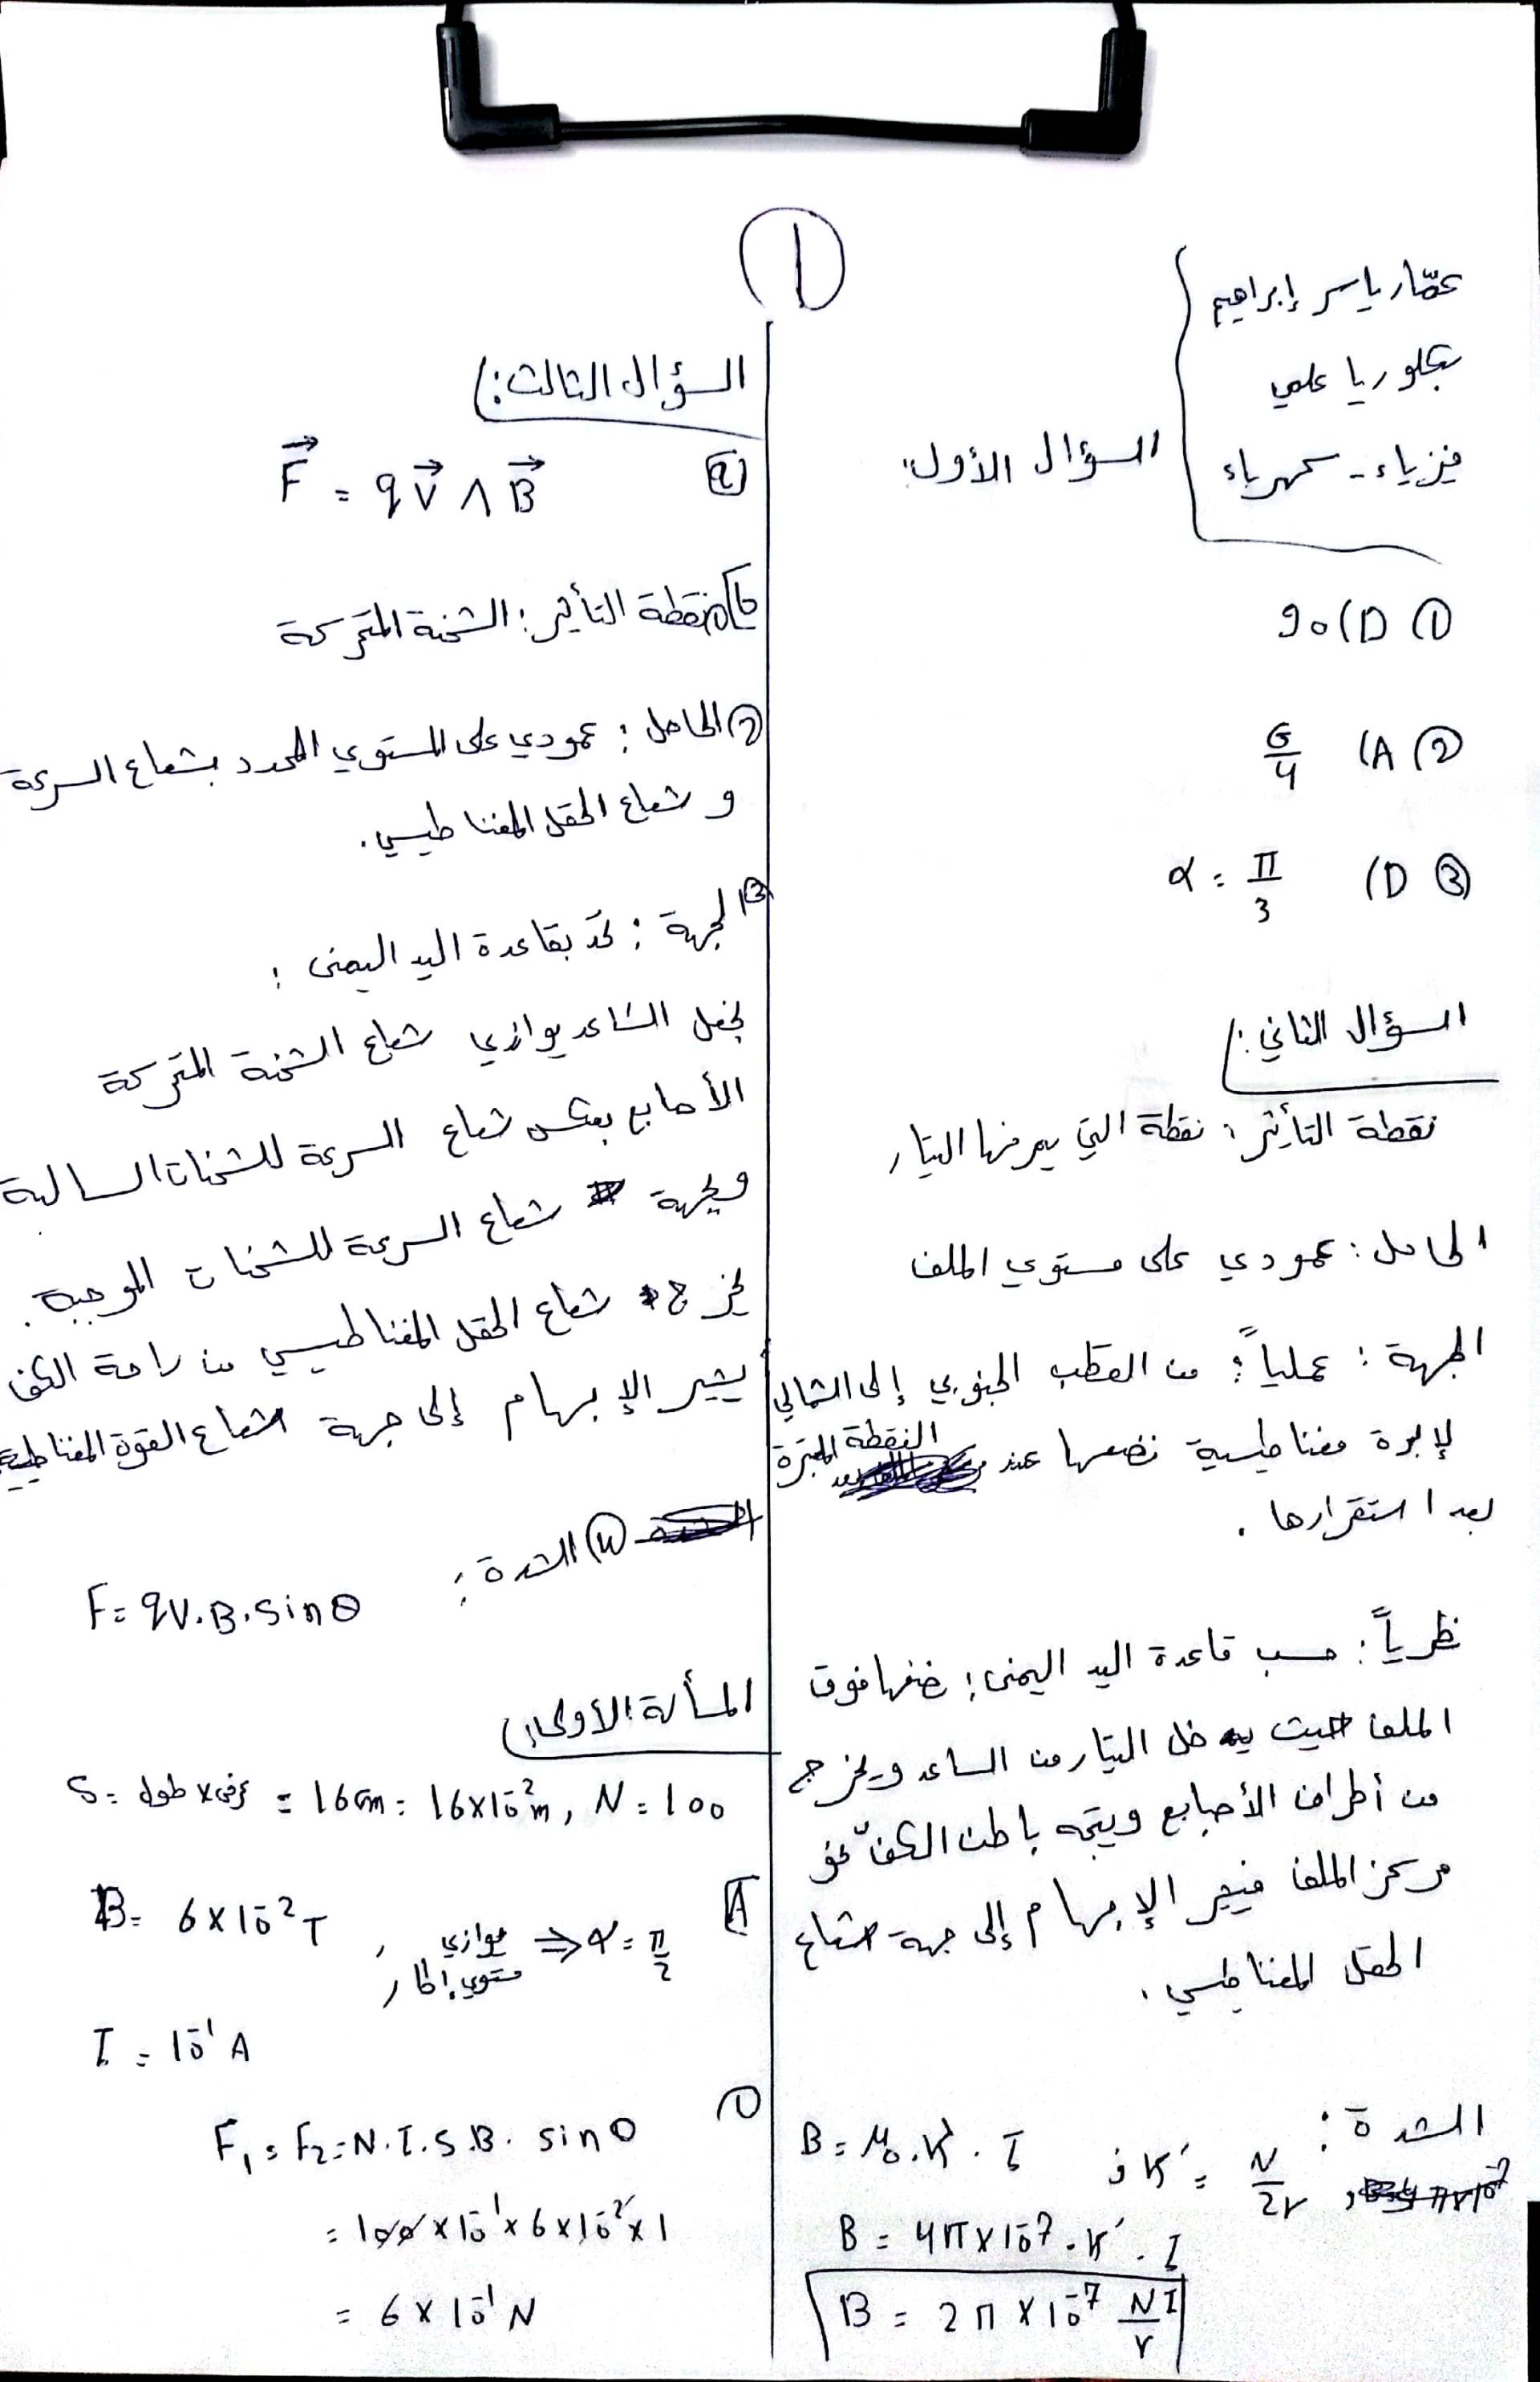 1
عمّار ياسر إبراهيم
بكلوريا علمي
فيزياء - كهرباء
السؤال الأول:
① D) 90
② A) G/4
③ D) α = π/3
السؤال الثاني:
نقطة التأثير: نقطة التي يمر منها التيار
الحامل: عمودي على مستوي الملف
الجهة: عملياً: من القطب الجنوبي إلى الشمالي
لإبرة مغناطيسية نضعها عند النقطة المعتبرة
بعد استقرارها.
نظرياً: حسب قاعدة اليد اليمنى: نضعها فوق
الملف حيث يدخل التيار من الساعد ويخرج
من أطراف الأصابع ويتجه باطن الكف نحو
مركز الملف فيشير الإبهام إلى جهة شعاع
الحقل المغناطيسي.
الشدة: B = μ₀.K'. I و K' = N/2r
B = 4π×10⁻⁷. K'. I
B = 2π×10⁻⁷ NI/r
السؤال الثالث:
a F⃗ = qv⃗ ∧ B⃗
b ① نقطة التأثير: الشحنة المتحركة
② الحامل: عمودي على المستوي المحدد بشعاع السرعة
و شعاع الحقل المغناطيسي.
③ الجهة: تحدّ بقاعدة اليد اليمنى:
نجعل الساعد يوازي شعاع الشحنة المتحركة
الأصابع بعكس شعاع السرعة للشحنات السالبة
وبجهة شعاع السرعة للشحنات الموجبة.
يخرج شعاع الحقل المغناطيسي من راحة الكف
يشير الإبهام إلى جهة شعاع القوة المغناطيسية
④ الشدة:
F = qv.B.sinθ
المسألة الأولى:
S = طول × عرض = 16cm = 16×10⁻²m, N = 100
A B = 6×10⁻²T , يوازي مستوي الإطار ⇒ α = π/2
I = 10⁻¹ A
① F₁ = F₂ = N.I.S.B. sinθ
= 100×10⁻¹×6×10⁻²×1
= 6×10⁻¹N